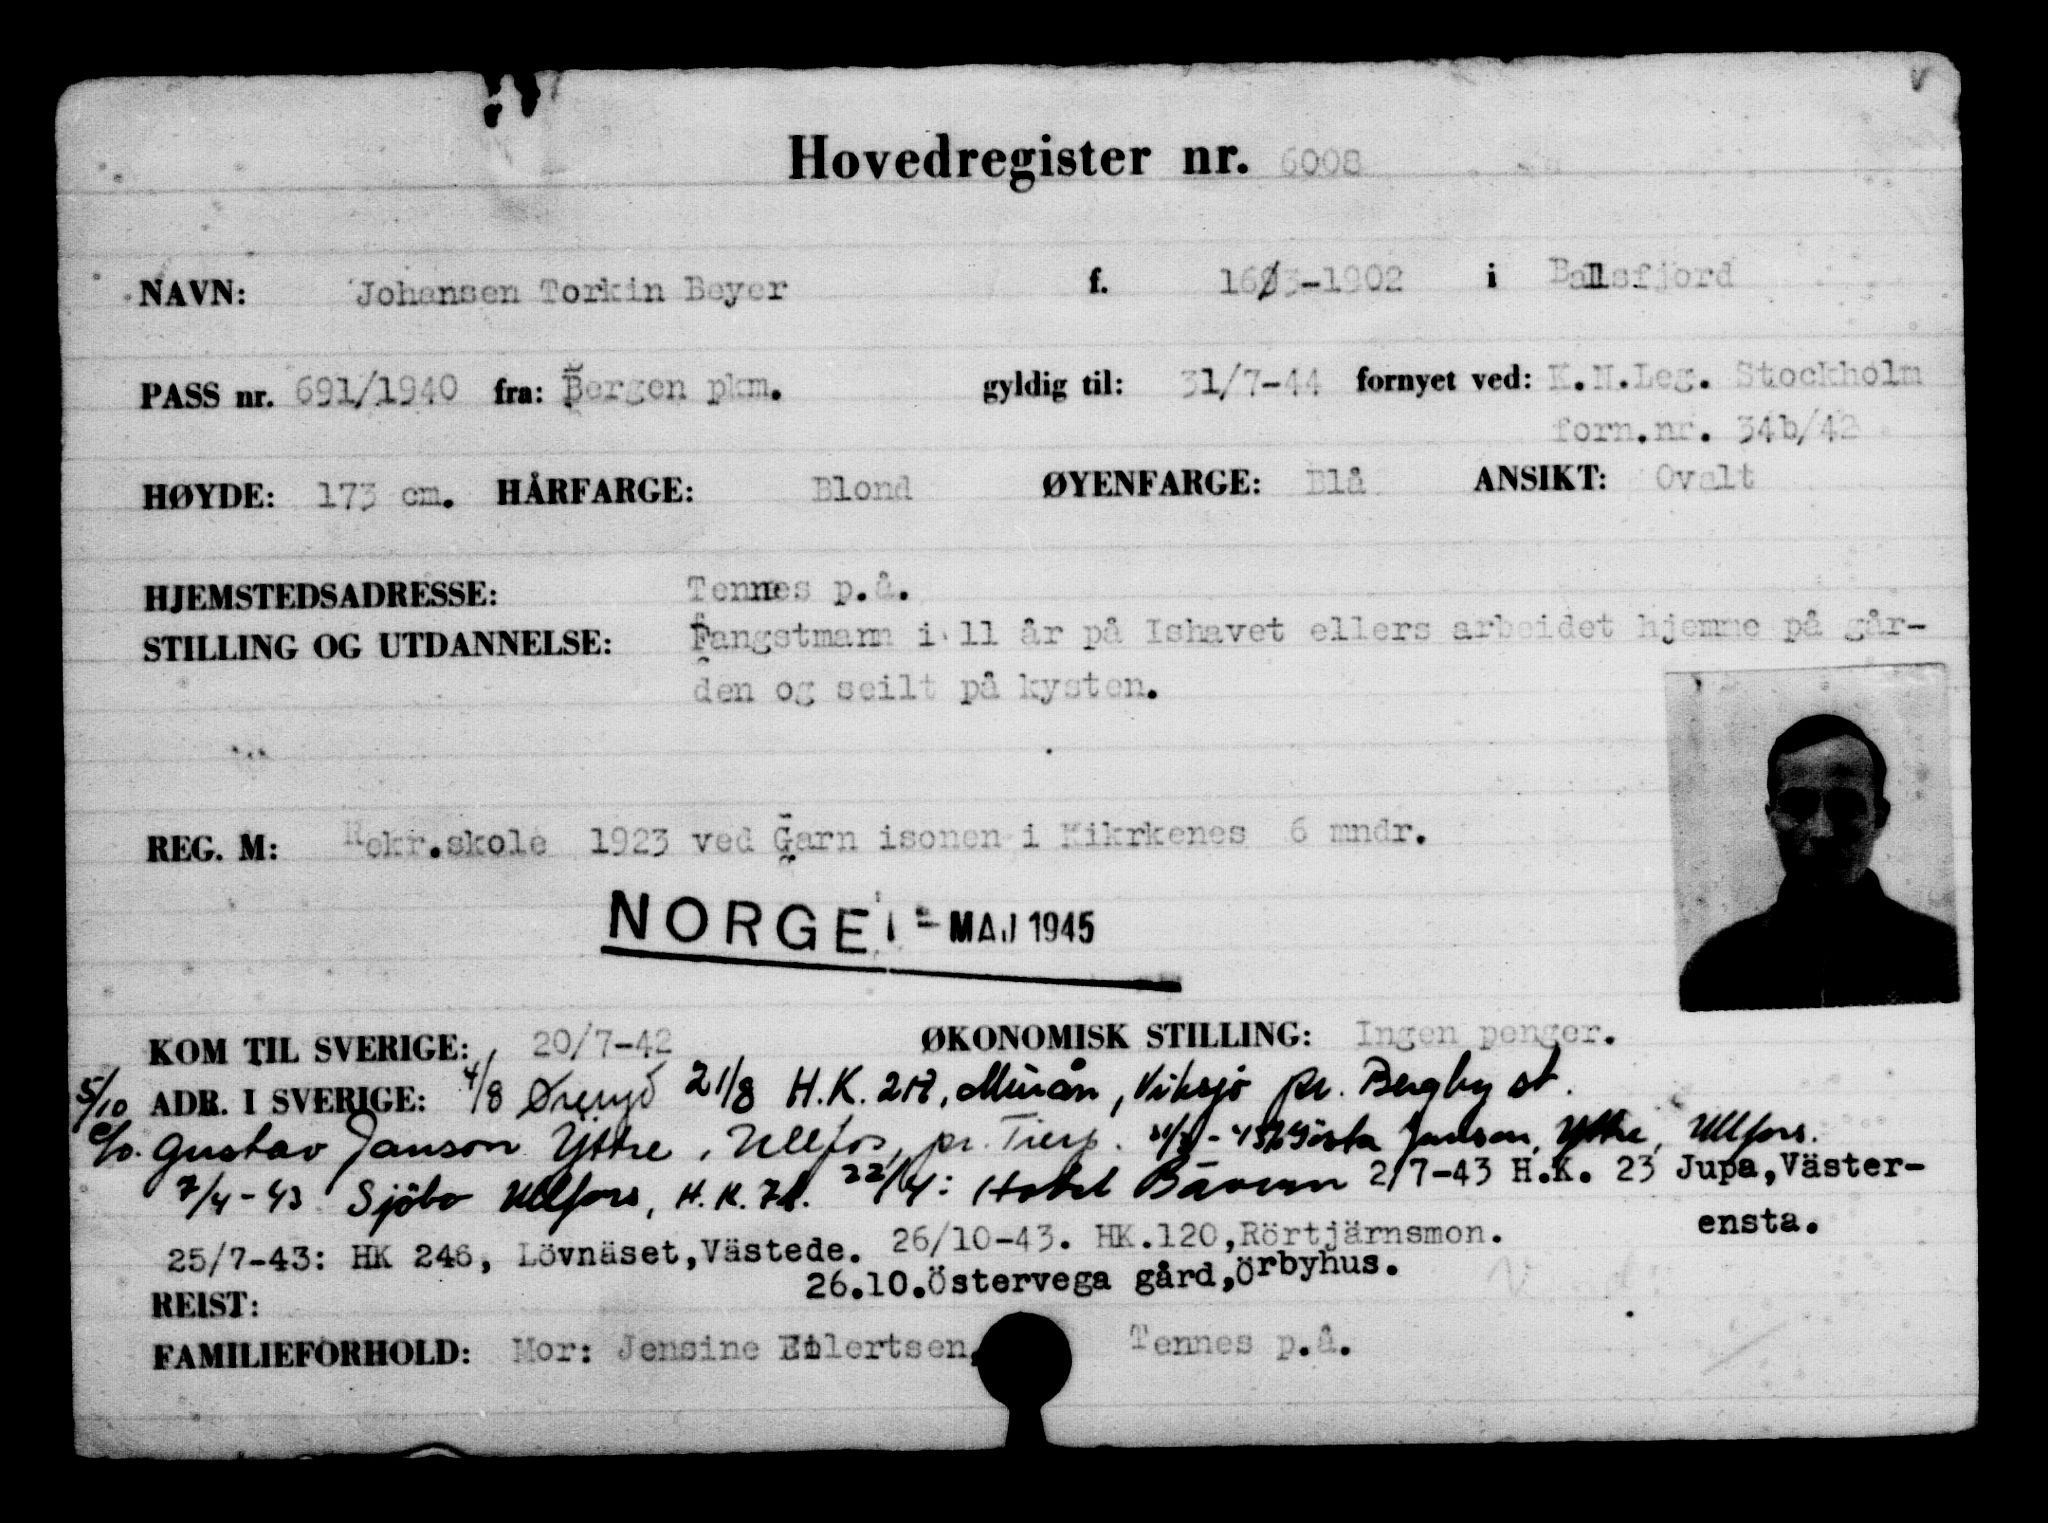 Hovedregister nr. 6008
NAVN: Johansen Torkin Beyer f. 16/3-1902 i Balsfjord
PASS nr. 691/1940 fra: Bergen pkm. gyldig til: 31/7-44 fornyet ved: K.N.Leg. Stockholm
forn.nr. 34b/42
HØYDE: 173 cm. HÅRFARGE: Blond ØYENFARGE: Blå ANSIKT: Ovalt
HJEMSTEDSADRESSE: Tennes p.å.
STILLING OG UTDANNELSE: Fangstmann i 11 år på Ishavet ellers arbeidet hjemme på går-
den og seilt på kysten.
REG. M: Rekr.skole 1923 ved Garn isonen i Kikrkenes 6 mndr.
NORGE MAJ 1945
KOM TIL SVERIGE: 20/7-42 ØKONOMISK STILLING: Ingen penger.
5/10 ADR. I SVERIGE: 4/8 Øreryd 21/8 H.K. 217, Viksjö pr. Bergby st.
c/o. Gustav Janson Yttre, Ullfors, pr. Tierp. Gösta Janson, Yttre, Ullfors.
7/4-43 Sjöbo Ullfors, H.K. 22/4: Hotel Bävern 2/7-43 H.K. 23 Jupa,Väster-
ensta.
25/7-43: HK 246, Lövnäset,Västede. 26/10-43. HK.120,Rörtjärnsmon.
26.10.Östervega gård,Örbyhus.
REIST:
FAMILIEFORHOLD: Mor: Jensine Eilertsen, Tennes p.å.